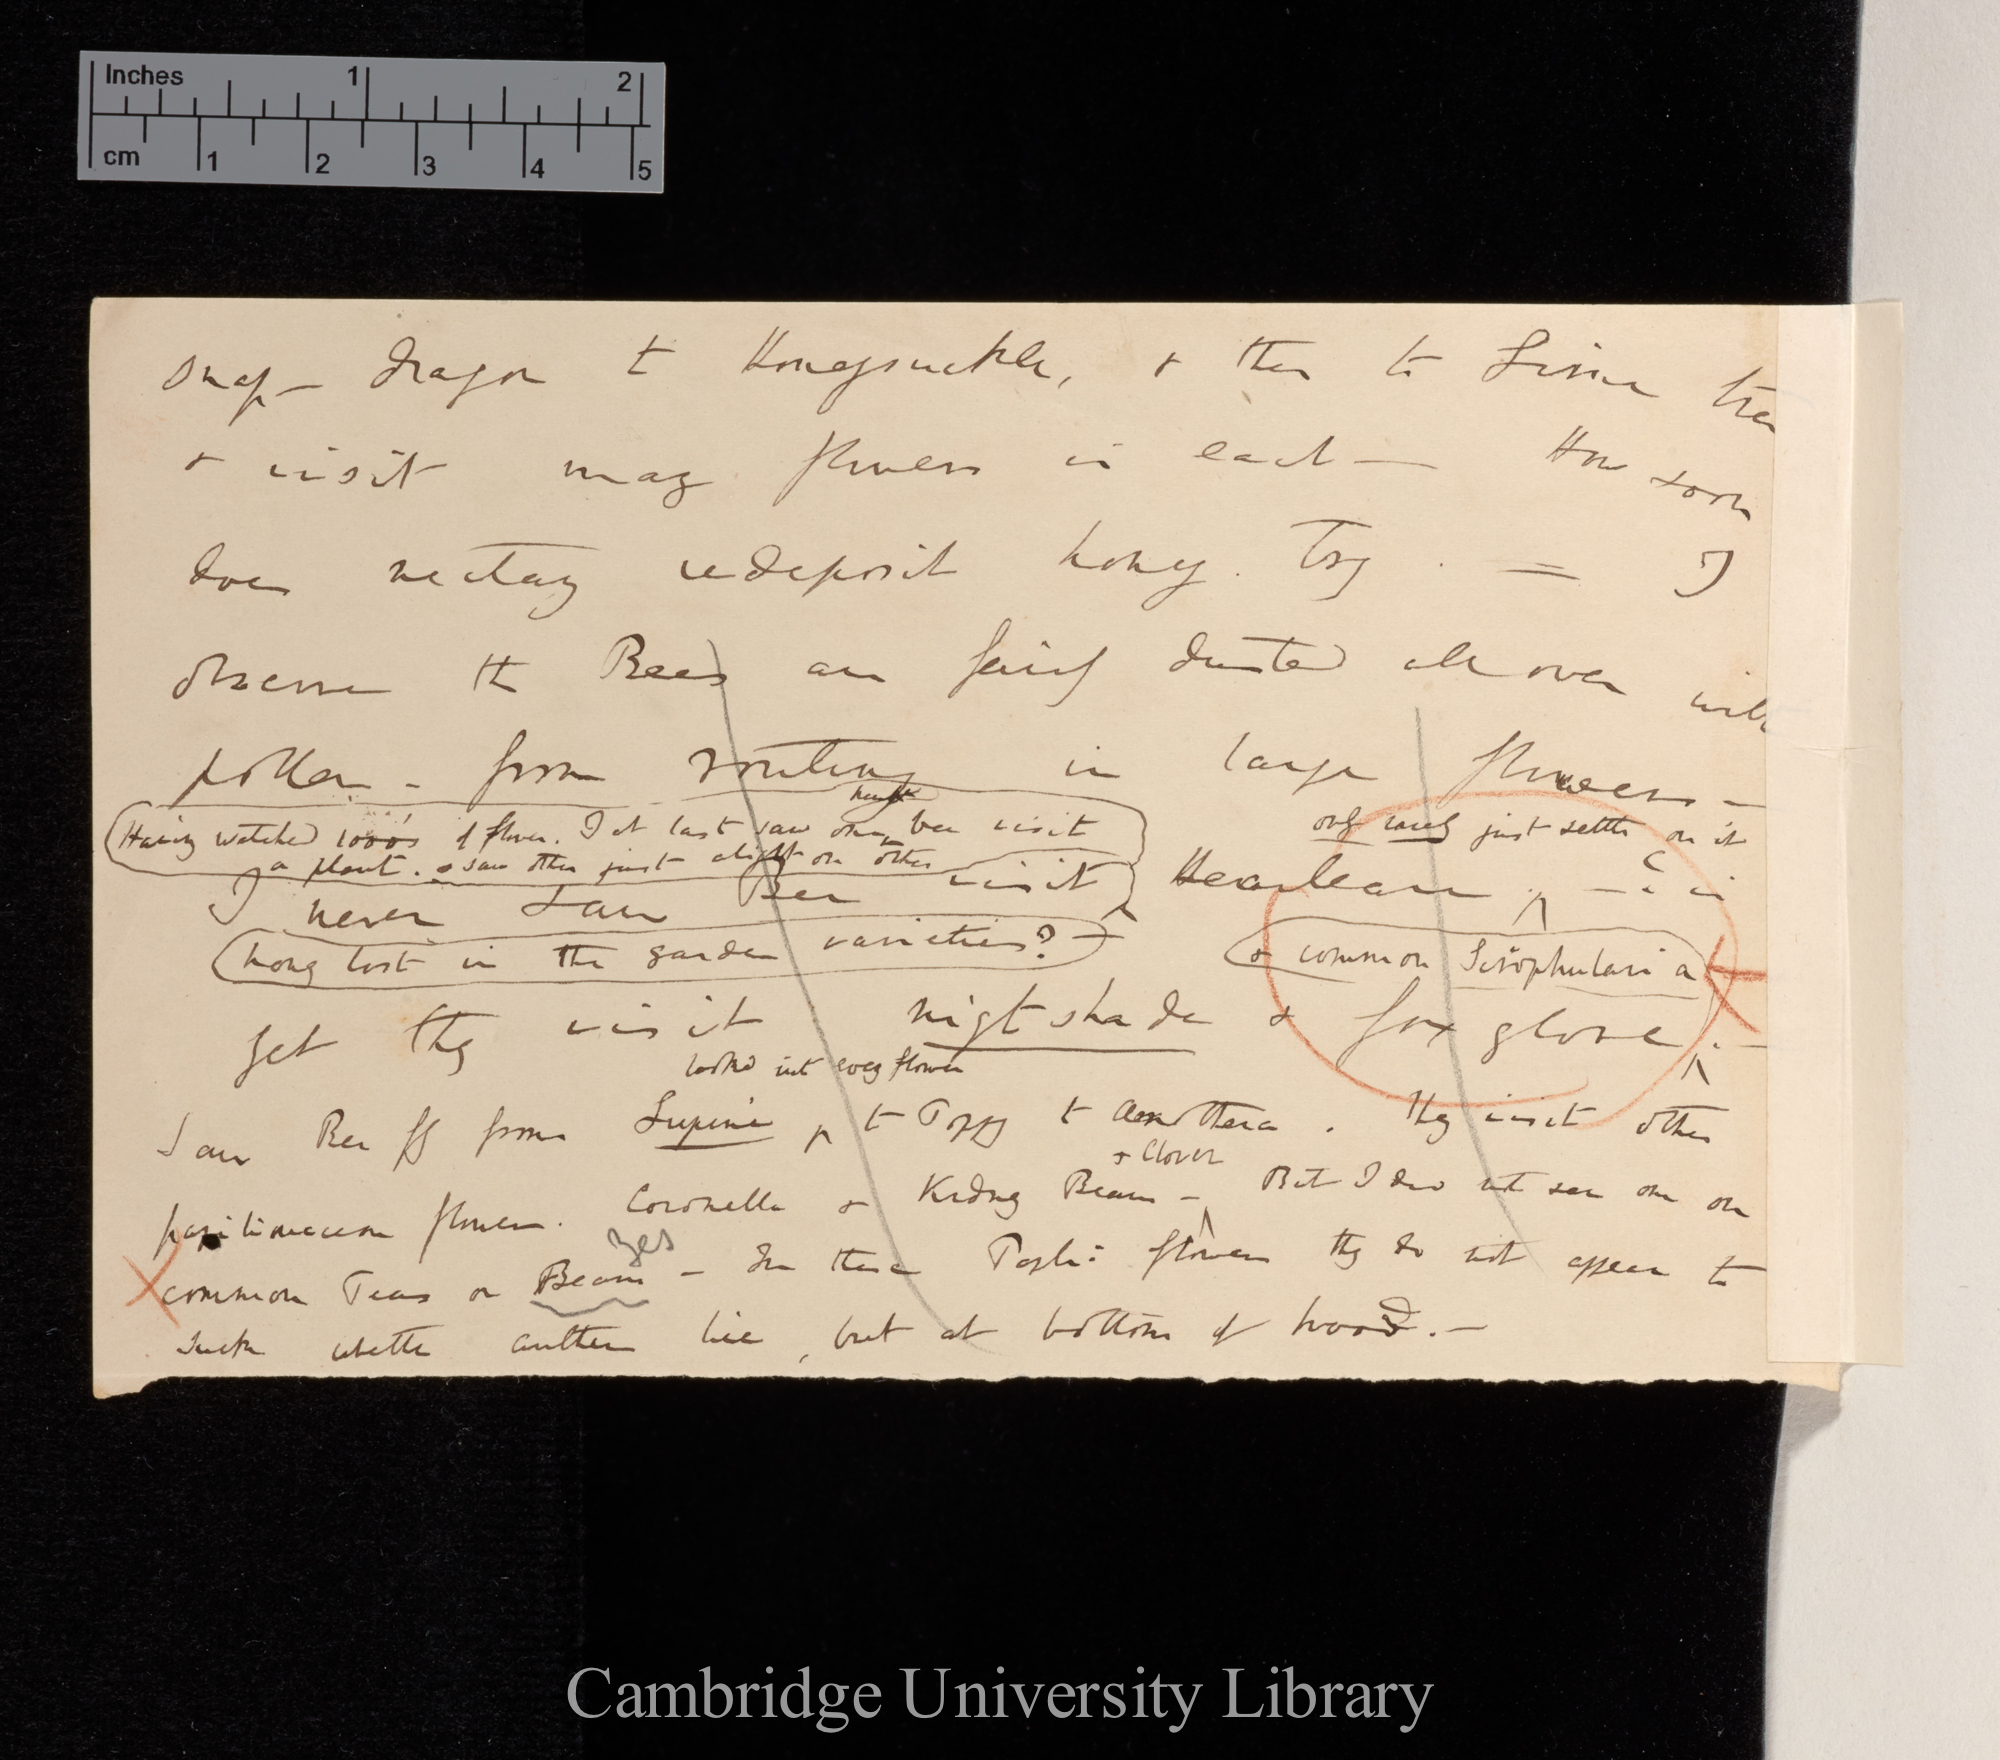 Inches 1 2
cm 1 2 3 4 5
Snap-dragon to Honeysuckle, & then to
& visit many flowers in each — How soon
does nectary redeposit honey. Try. = I
observe the Bees are fairly dusted all over with
pollen – from routing in large flowers —
Having watched 1000's of flower. I at last saw one bee visit
only rarely just settle on it
a plant. & saw other just alight on other
I never saw Bee visit Heartsease — is
honey lost in the garden varieties? —
& common Scrophularia
yet they visit nightshade & foxglove. —
looked into every flower
Saw Bee fly from Lupine, to Poppy to Œnothera. They visit other
& Clover
papilionaceous flower. Coronella & Kidney Beans – But I did not see one on
yes
common Peas or Beans – In these Papil: flowers they do not appear to
suck whether anthers lie, but at bottom of hood. —
Cambridge University Library